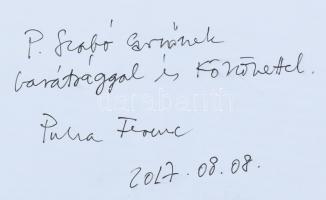 P. Szabó Ernőnek
barátsággal és köszönettel.
Puha Ferenc
2017.08.08.